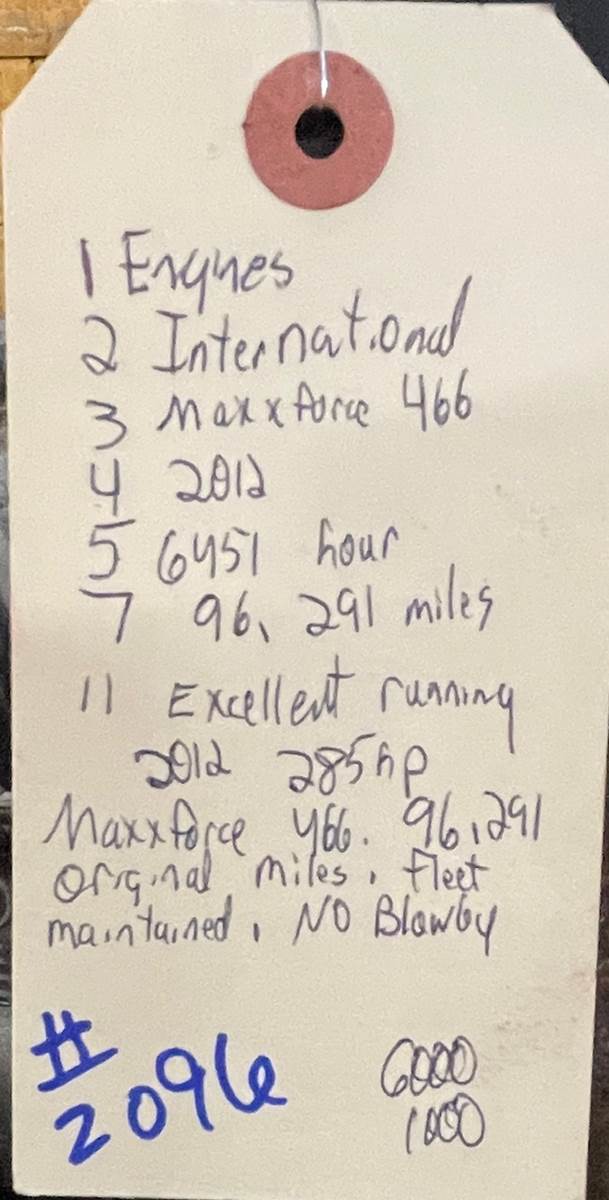 1 Engines
2 International
3 Maxxforce 466
4 2012
5 6451 hour
7 96, 291 miles
11 Excellent running
2012 285hp
Maxxforce 466. 96,291
original miles, fleet
maintained, NO Blowby
#2096
6000
1000